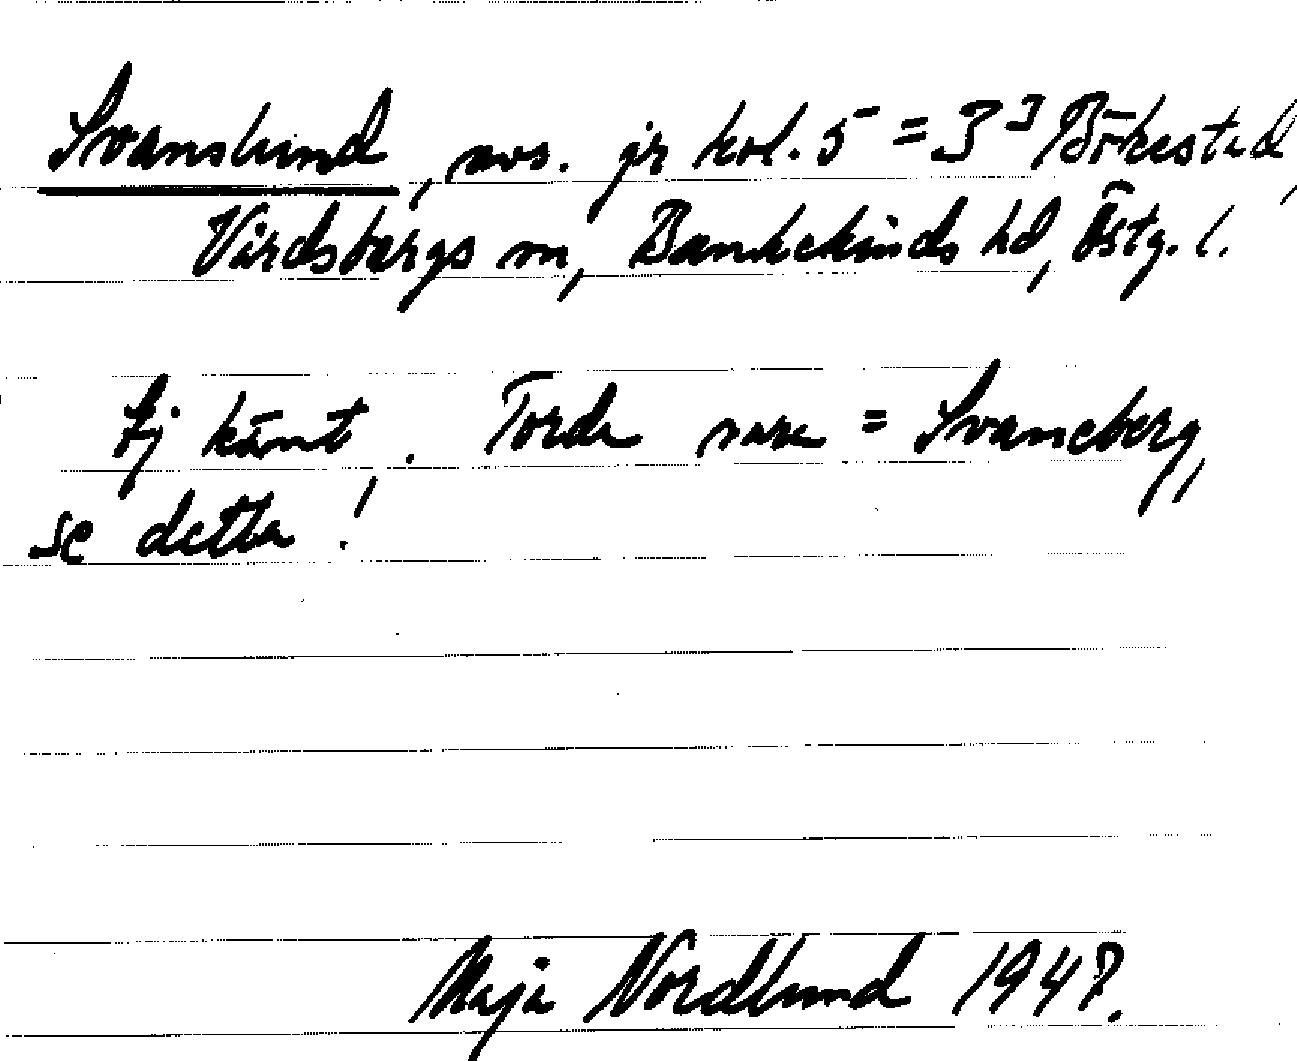 Svanslund, avs. jr kol. 5 = 3³ Bökestad,
Vårdsbergs sn, Bankekinds hd, Östg. l.
Ej känt. Torde vara = Svaneberg,
se detta!
Maja Nordlund 1947.